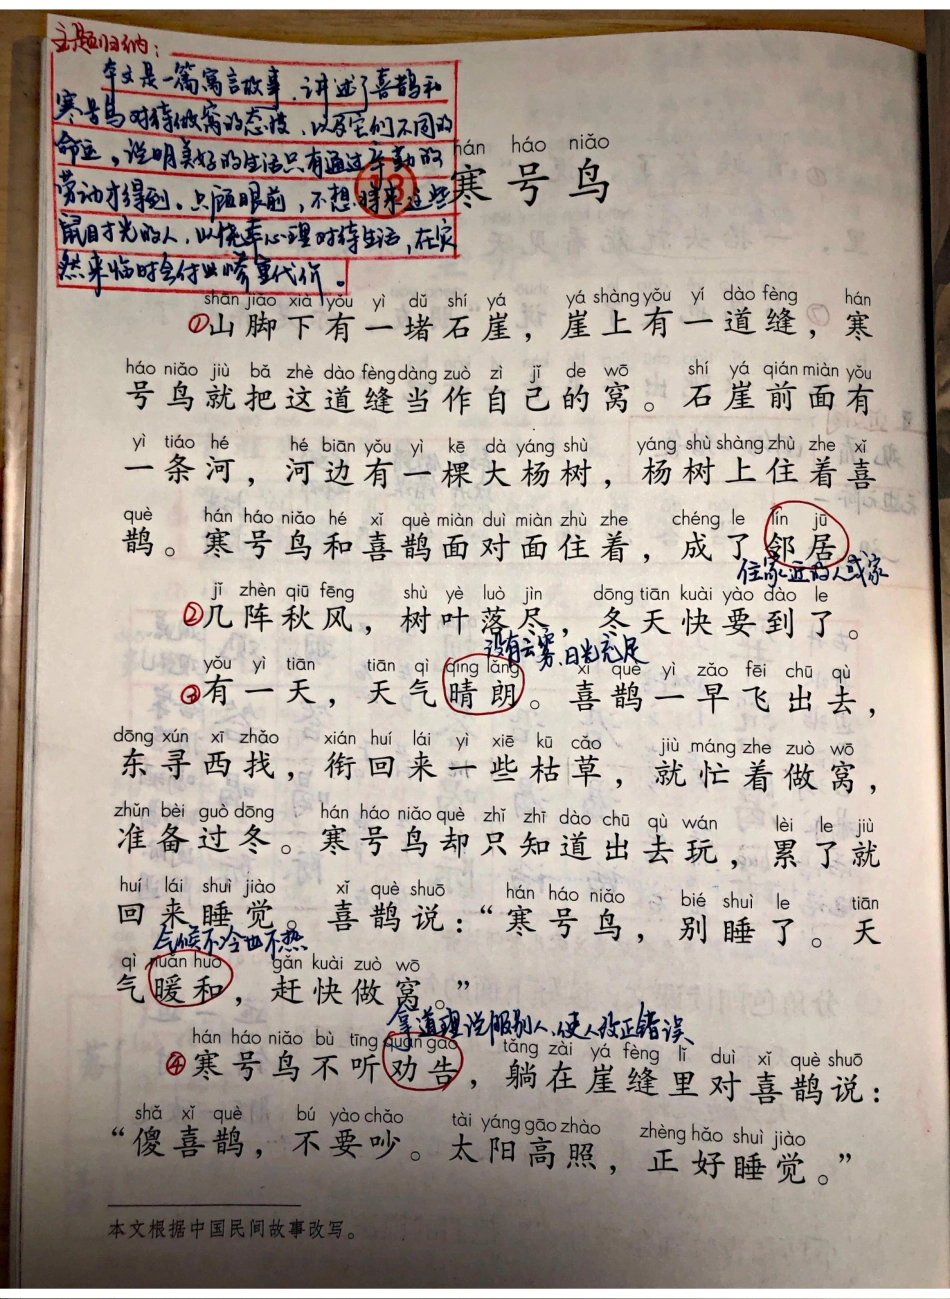 主题归纳：
本文是一篇寓言故事，讲述了喜鹊和
寒号鸟对待做窝的态度，以及它们不同的
命运，说明美好的生活只有通过辛勤的
劳动才得到。只顾眼前，不想将来这些
鼠目寸光的人，以侥幸心理对待生活，在灾
然来临时会付出惨重代价。
hán háo niǎo
13 寒号鸟
shān jiǎo xià yǒu yì dǔ shí yá yá shàng yǒu yí dào fèng hán
①山脚下有一堵石崖，崖上有一道缝，寒
háo niǎo jiù bǎ zhè dào fèng dàng zuò zì jǐ de wō shí yá qián miàn yǒu
号鸟就把这道缝当作自己的窝。石崖前面有
yì tiáo hé hé biān yǒu yì kē dà yáng shù yáng shù shàng zhù zhe xǐ
一条河，河边有一棵大杨树，杨树上住着喜
què hán háo niǎo hé xǐ què miàn duì miàn zhù zhe chéng le lín jū
鹊。寒号鸟和喜鹊面对面住着，成了邻居
住家近的人或家
jǐ zhèn qiū fēng shù yè luò jìn dōng tiān kuài yào dào le
②几阵秋风，树叶落尽，冬天快要到了。
没有云雾、日光充足
yǒu yì tiān tiān qì qíng lǎng xǐ què yì zǎo fēi chū qù
③有一天，天气晴朗。喜鹊一早飞出去，
dōng xún xī zhǎo xián huí lái yì xiē kū cǎo jiù máng zhe zuò wō
东寻西找，衔回来一些枯草，就忙着做窝，
zhǔn bèi guò dōng hán háo niǎo què zhǐ zhī dào chū qù wán lèi le jiù
准备过冬。寒号鸟却只知道出去玩，累了就
huí lái shuì jiào xǐ què shuō hán háo niǎo bié shuì le tiān
回来睡觉。喜鹊说：“寒号鸟，别睡了。天
气候不冷也不热
qì nuǎn huo gǎn kuài zuò wō
气暖和，赶快做窝。”
拿道理说服别人，使人改正错误
hán háo niǎo bù tīng quàn gào tǎng zài yá fèng lǐ duì xǐ què shuō
④寒号鸟不听劝告，躺在崖缝里对喜鹊说：
shǎ xǐ què bú yào chǎo tài yáng gāo zhào zhèng hǎo shuì jiào
“傻喜鹊，不要吵。太阳高照，正好睡觉。”
本文根据中国民间故事改写。